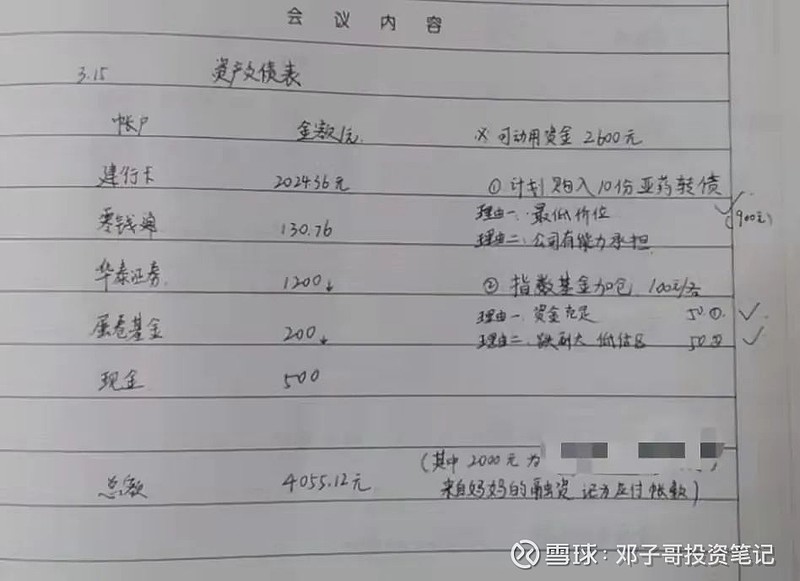 会议内容
3.15 资产负债表
帐户 金额/元 ※可动用资金2600元
建行卡 2024.36元 ①计划购入10份亚药转债
零钱通 130.76 理由一:最低价位 (900元)
理由二:公司有能力承担
华泰证券 1200↓ ②指数基金加仓 100元/各
蛋卷基金 200↓ 理由一:资金充足 50 ①
理由二:跌到大低估区 50 ②
现金 500
总额 4055.12元 (其中2000元为
来自妈妈的融资 记为应付帐款)
雪球:邓子哥投资笔记